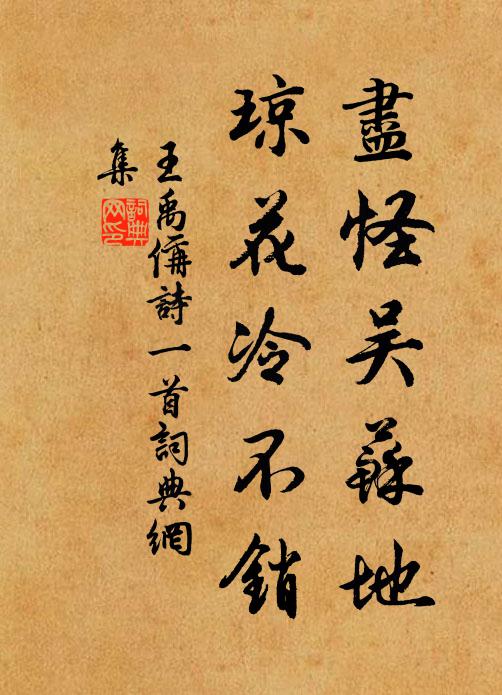 盡怪吴蘇地
琼花冷不銷
王禹偁詩一首詞典網
集
詞典
网印